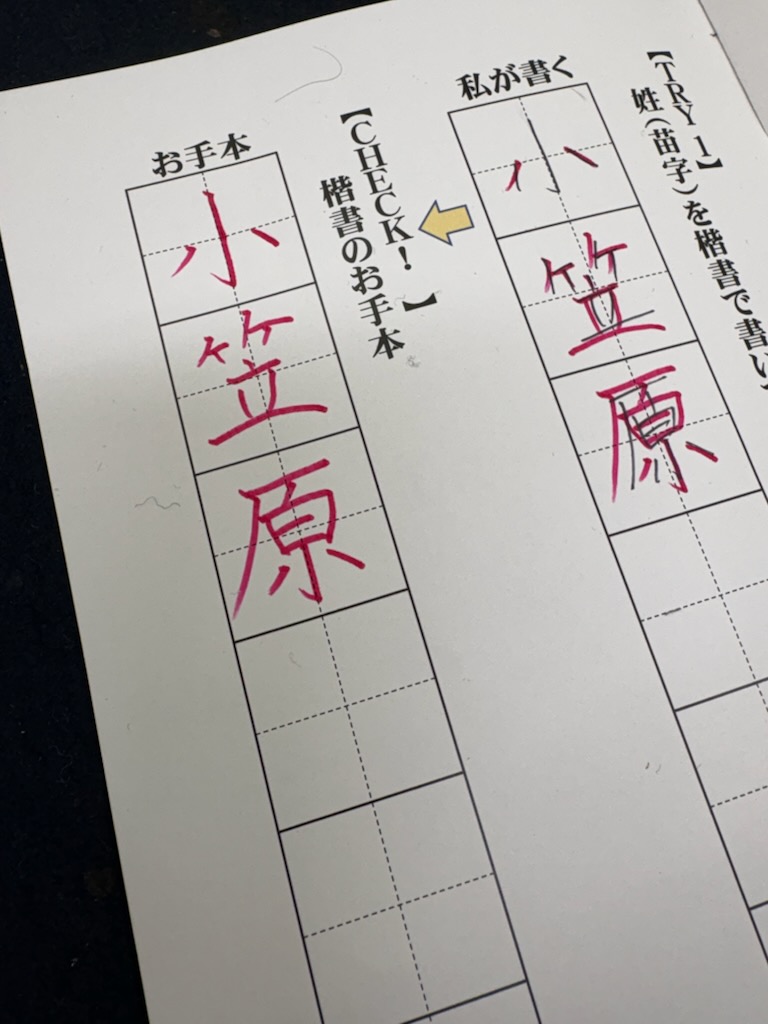 【TRY 1】
姓(苗字)を楷書で書い
私が書く
小笠原
【CHECK!】
楷書のお手本
お手本
小笠原